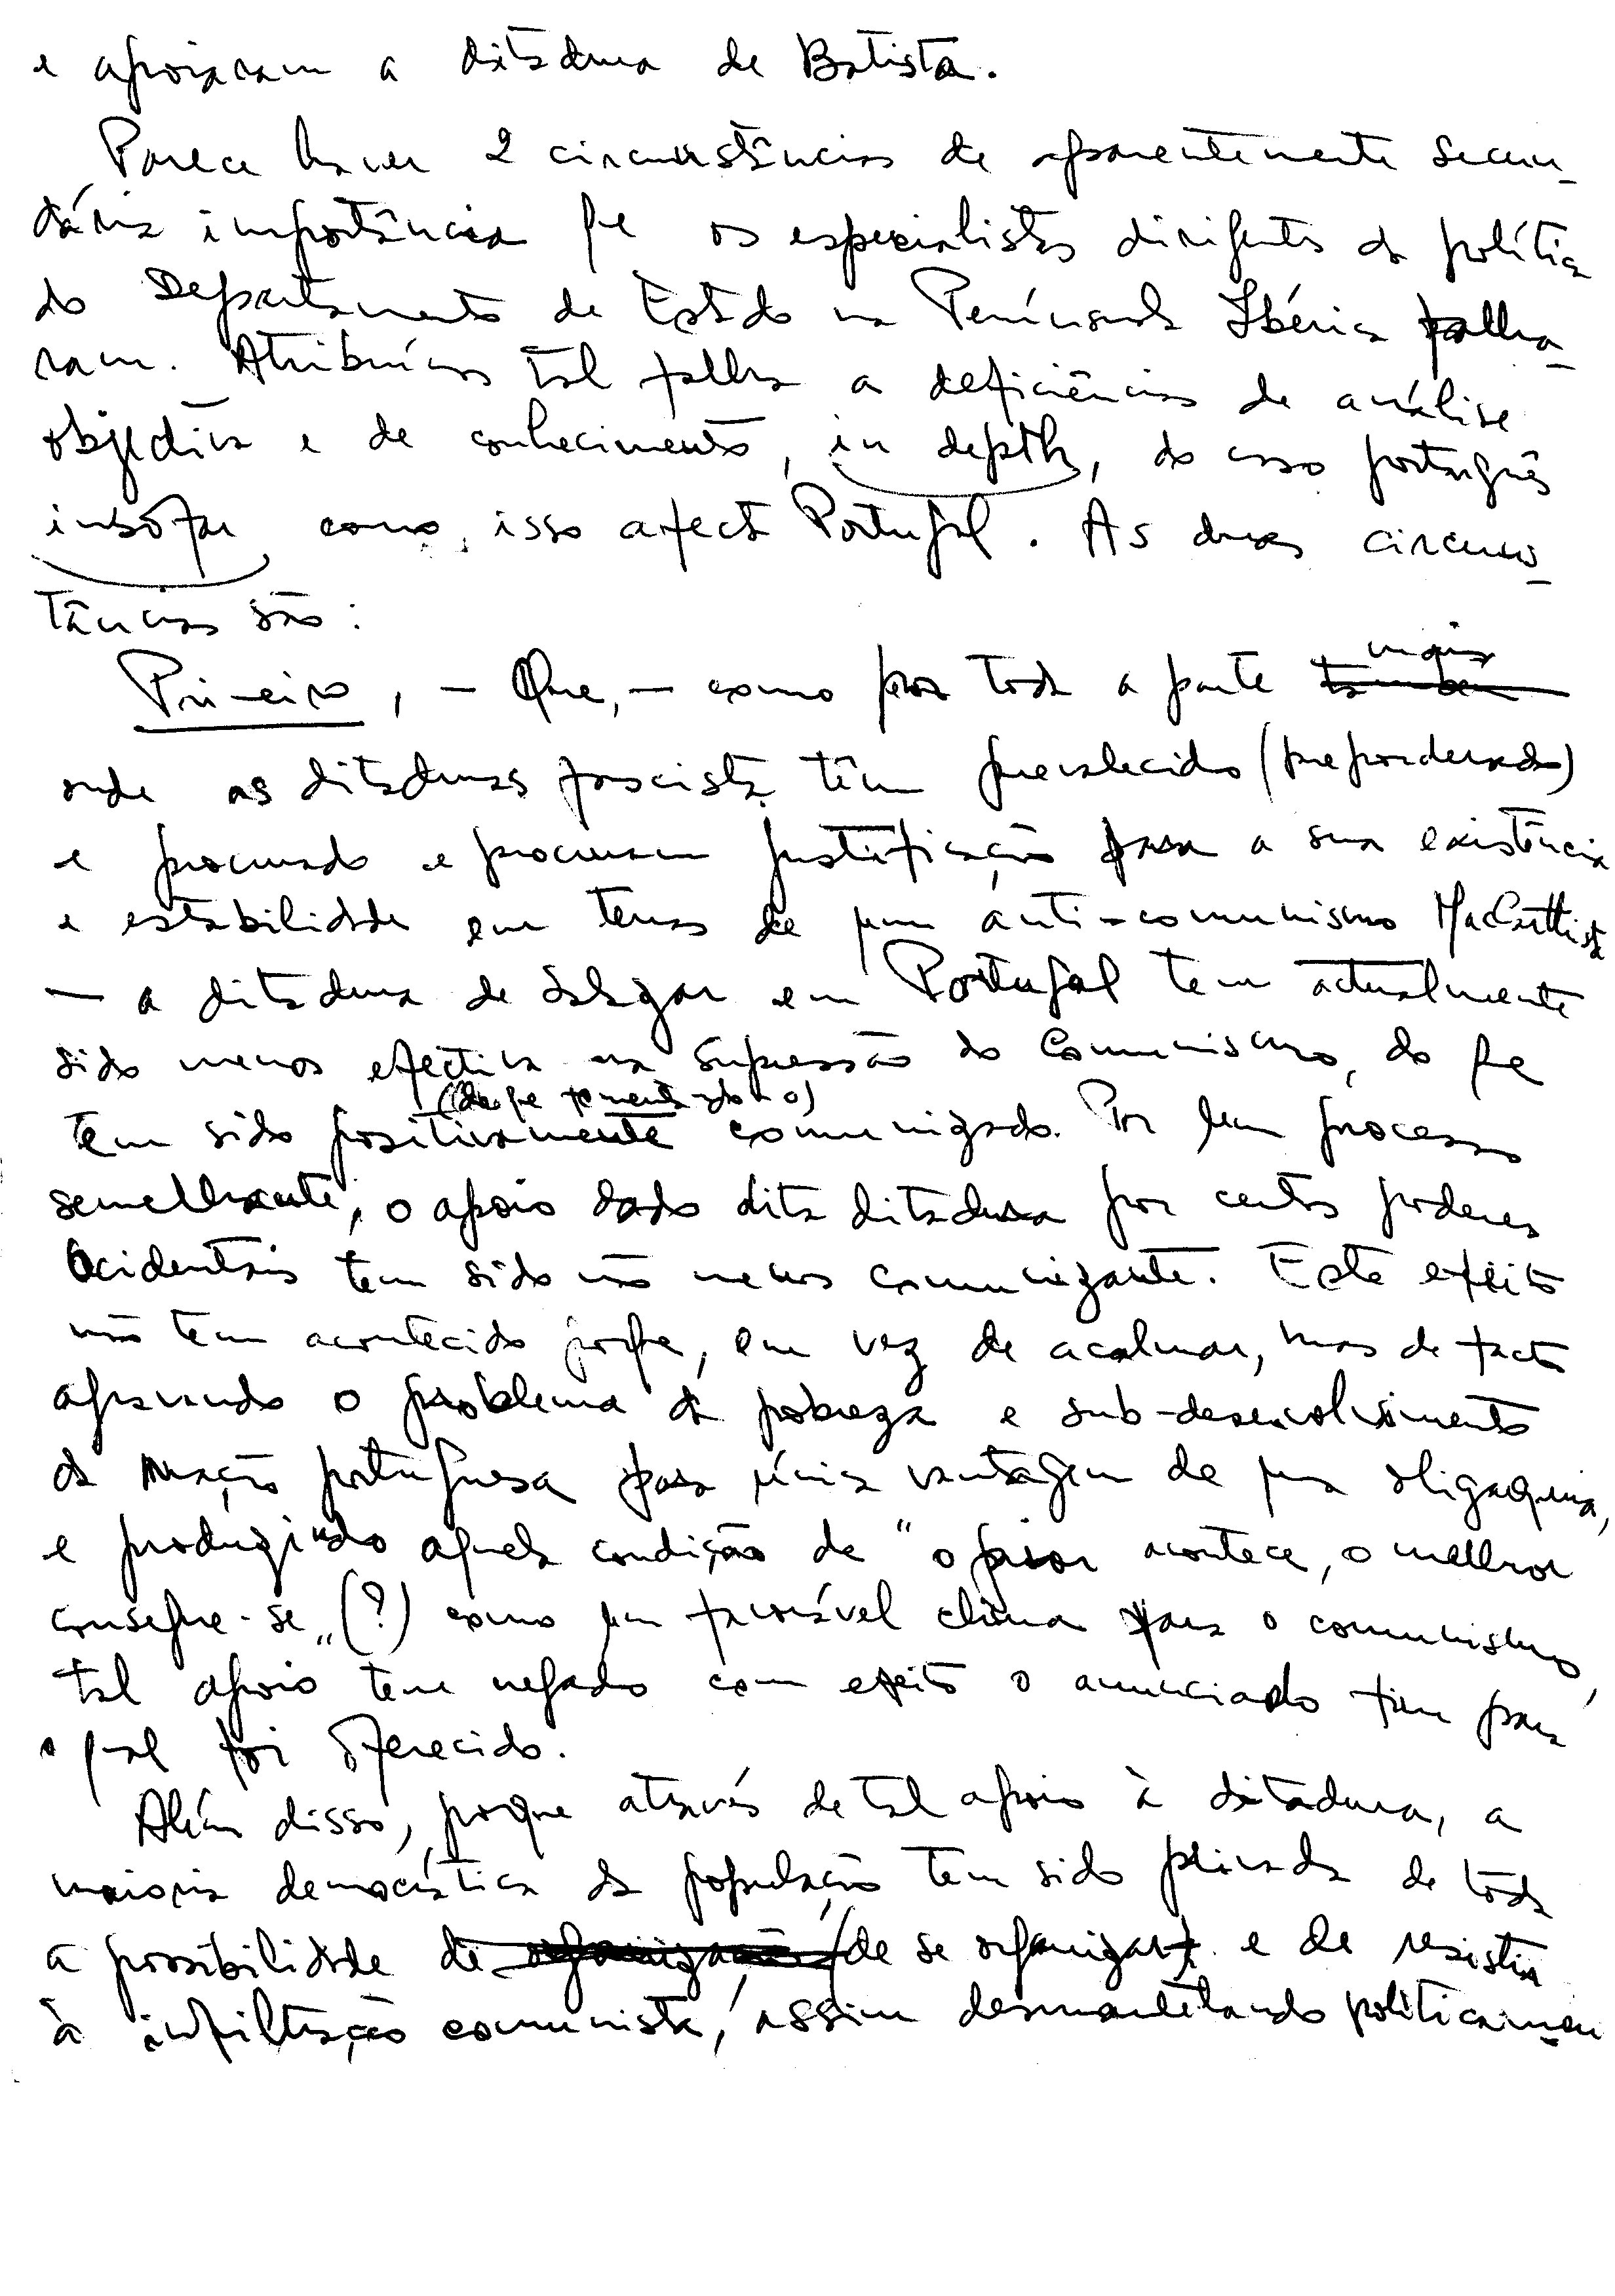 e apoiaram a ditadura de Batista.
Parece haver 2 circunstâncias de aparentemente secun-
dária importância qe os especialistas dirigentes da política
do Departamento de Estado na Península Ibérica falha-
ram. Atribuímos tal falha a deficiências de análise
objectiva e de conhecimento, in depth, do caso português
insofar como isso afecta Portugal. As duas circuns-
tâncias são:
Primeiro, - Que, - como por toda a parte mais
onde as ditaduras fascistas têm prevalecido (preponderado)
e procurado e procuram justificação para a sua existência
e estabilidade em termos de um anti-comunismo MacCarthista
- a ditadura de Salazar em Portugal tem actualmente
sido menos efectiva na supressão do Comunismo, do qe
(do qe fomentando-o)
tem sido positivamente comunizado. Por um processo
semelhante, o apoio dado dita ditadura por certos poderes
Ocidentais tem sido não menos comunizante. Este efeito
não tem acontecido porqe, em vez de acalmar, mas de facto
agravando o problema da pobreza e sub-desenvolvimento
da nação portuguesa para única vantagem de uma oligarquia,
e produzindo aquela condição de "o pior acontece, o melhor
consegue-se" (?) como um favorável clima para o comunismo,
tal apoio tem negado com efeito o anunciado fim para
o qual foi oferecido.
Além disso, porque através de tal apoio à ditadura, a
maioria democrática da população tem sido privada de toda
a possibilidade de organização de se organizar e de resistir
à infiltração comunista, assim desmantelando politicamen